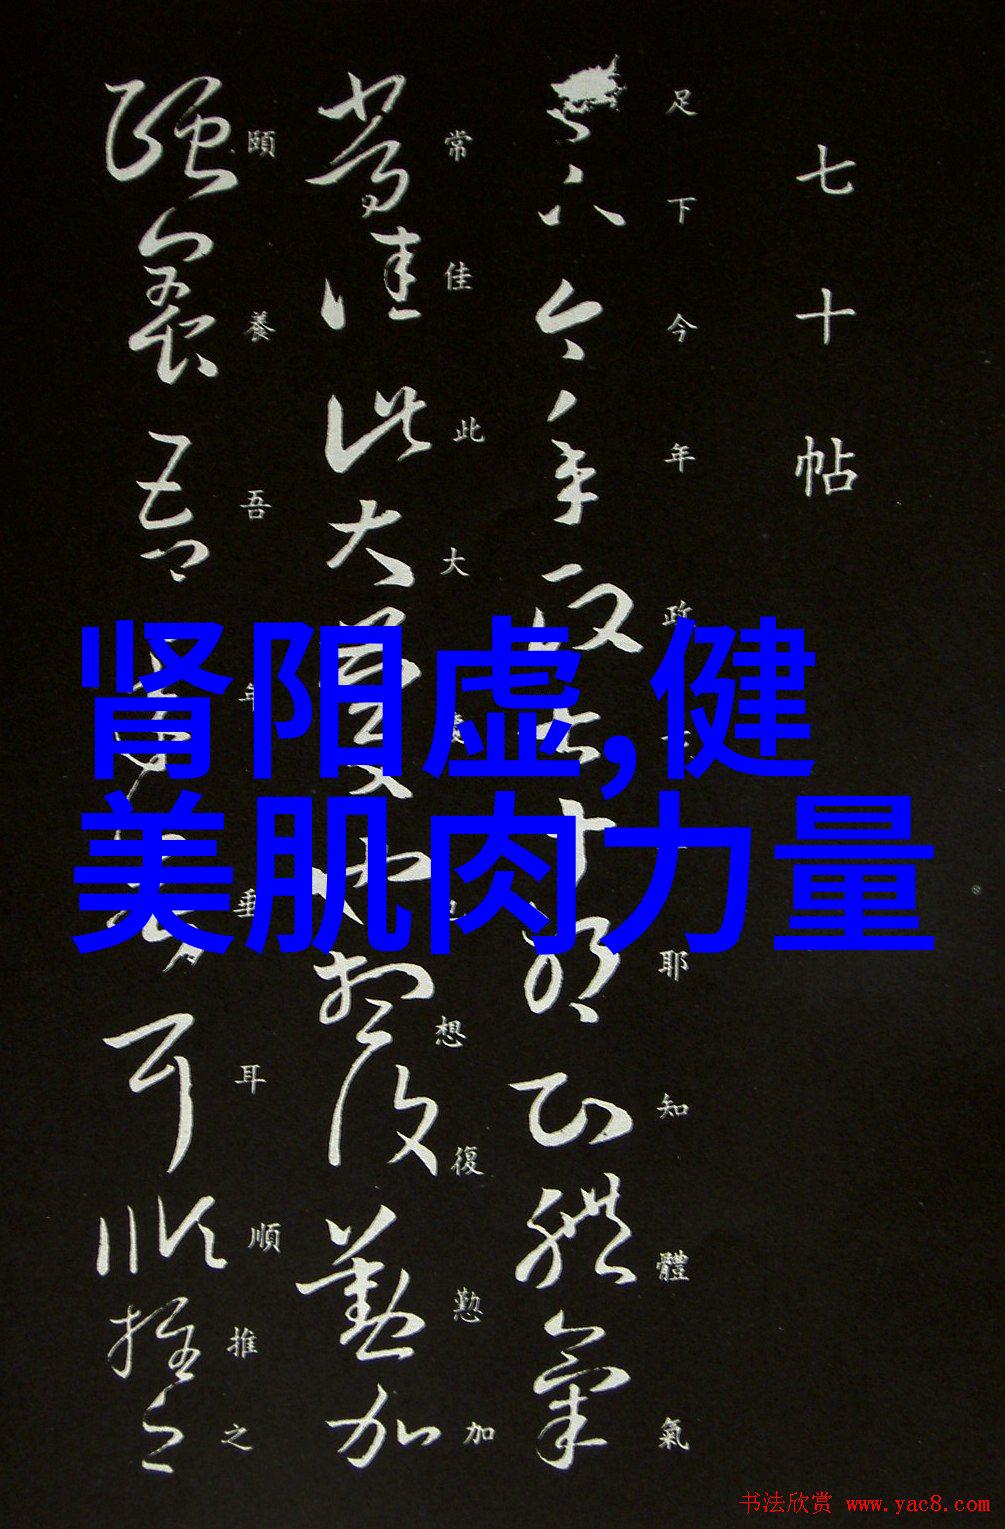 七十帖
足下今年政七十耶知體氣
常佳此大慶也想復懃加
頤養吾年垂耳順推之
肾阳虚,健
美肌肉力量
书法欣赏 www.yac8.com